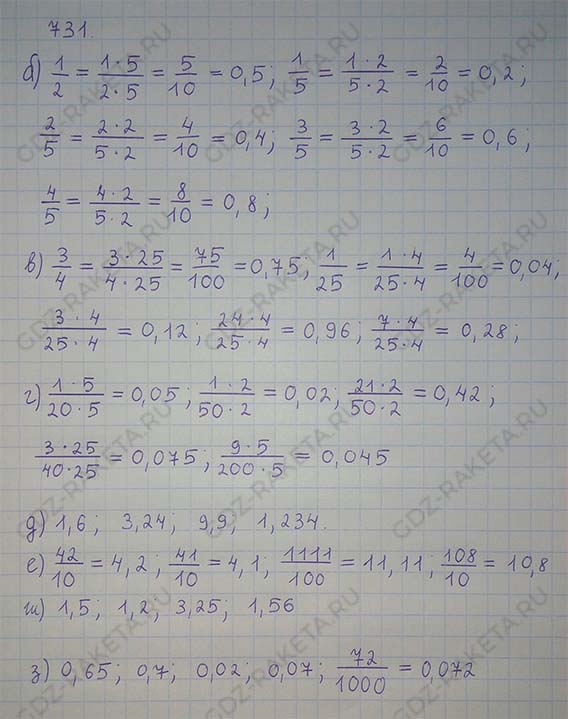 731.
б) 1/2 = 1·5/2·5 = 5/10 = 0,5; 1/5 = 1·2/5·2 = 2/10 = 0,2;
2/5 = 2·2/5·2 = 4/10 = 0,4; 3/5 = 3·2/5·2 = 6/10 = 0,6;
4/5 = 4·2/5·2 = 8/10 = 0,8;
в) 3/4 = 3·25/4·25 = 75/100 = 0,75; 1/25 = 1·4/25·4 = 4/100 = 0,04;
3·4/25·4 = 0,12; 24·4/25·4 = 0,96; 7·4/25·4 = 0,28;
г) 1·5/20·5 = 0,05; 1·2/50·2 = 0,02; 21·2/50·2 = 0,42;
3·25/40·25 = 0,075; 9·5/200·5 = 0,045
д) 1,6; 3,24; 9,9; 1,234.
е) 42/10 = 4,2; 41/10 = 4,1; 1111/100 = 11,11; 108/10 = 10,8
ж) 1,5; 1,2; 3,25; 1,56
з) 0,65; 0,7; 0,02; 0,07; 72/1000 = 0,072
GDZ-RAKETA.RU